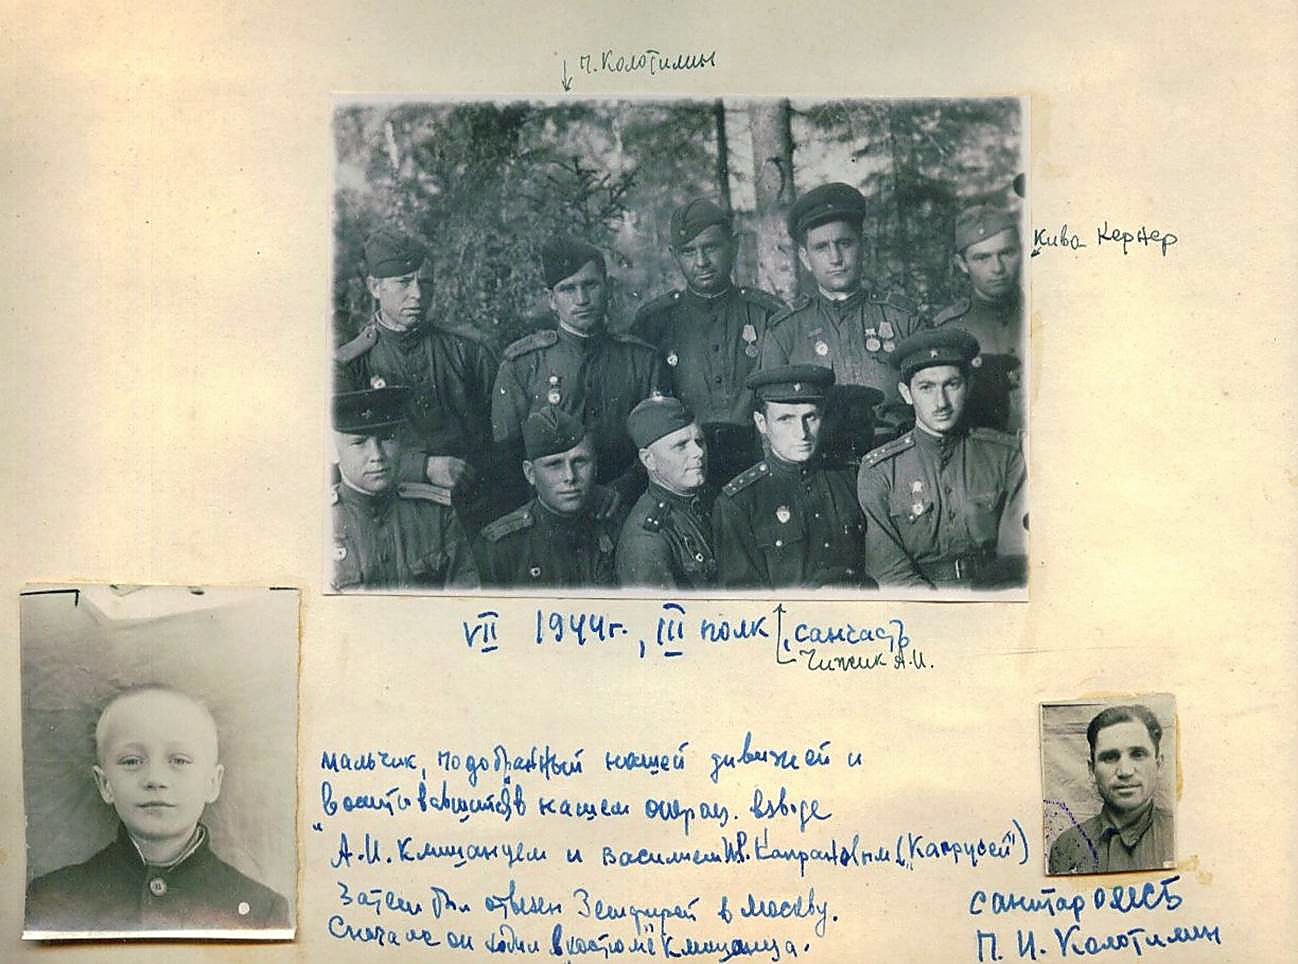 П. Колотилин
Кива Кернер
VII 1944г., III полк, санчасть
Чижик А.И.
мальчик, подобранный нашей дивизией и
воспитывавшийся в нашем операц. взводе
А.И. Клищанцем и Василием Капрановым ("Капрусей")
Затем был отвезен Земфирой в Москву.
Сначала он ходил в костюме Клищанца.
санитар ОМСБ
П. И. Колотилин